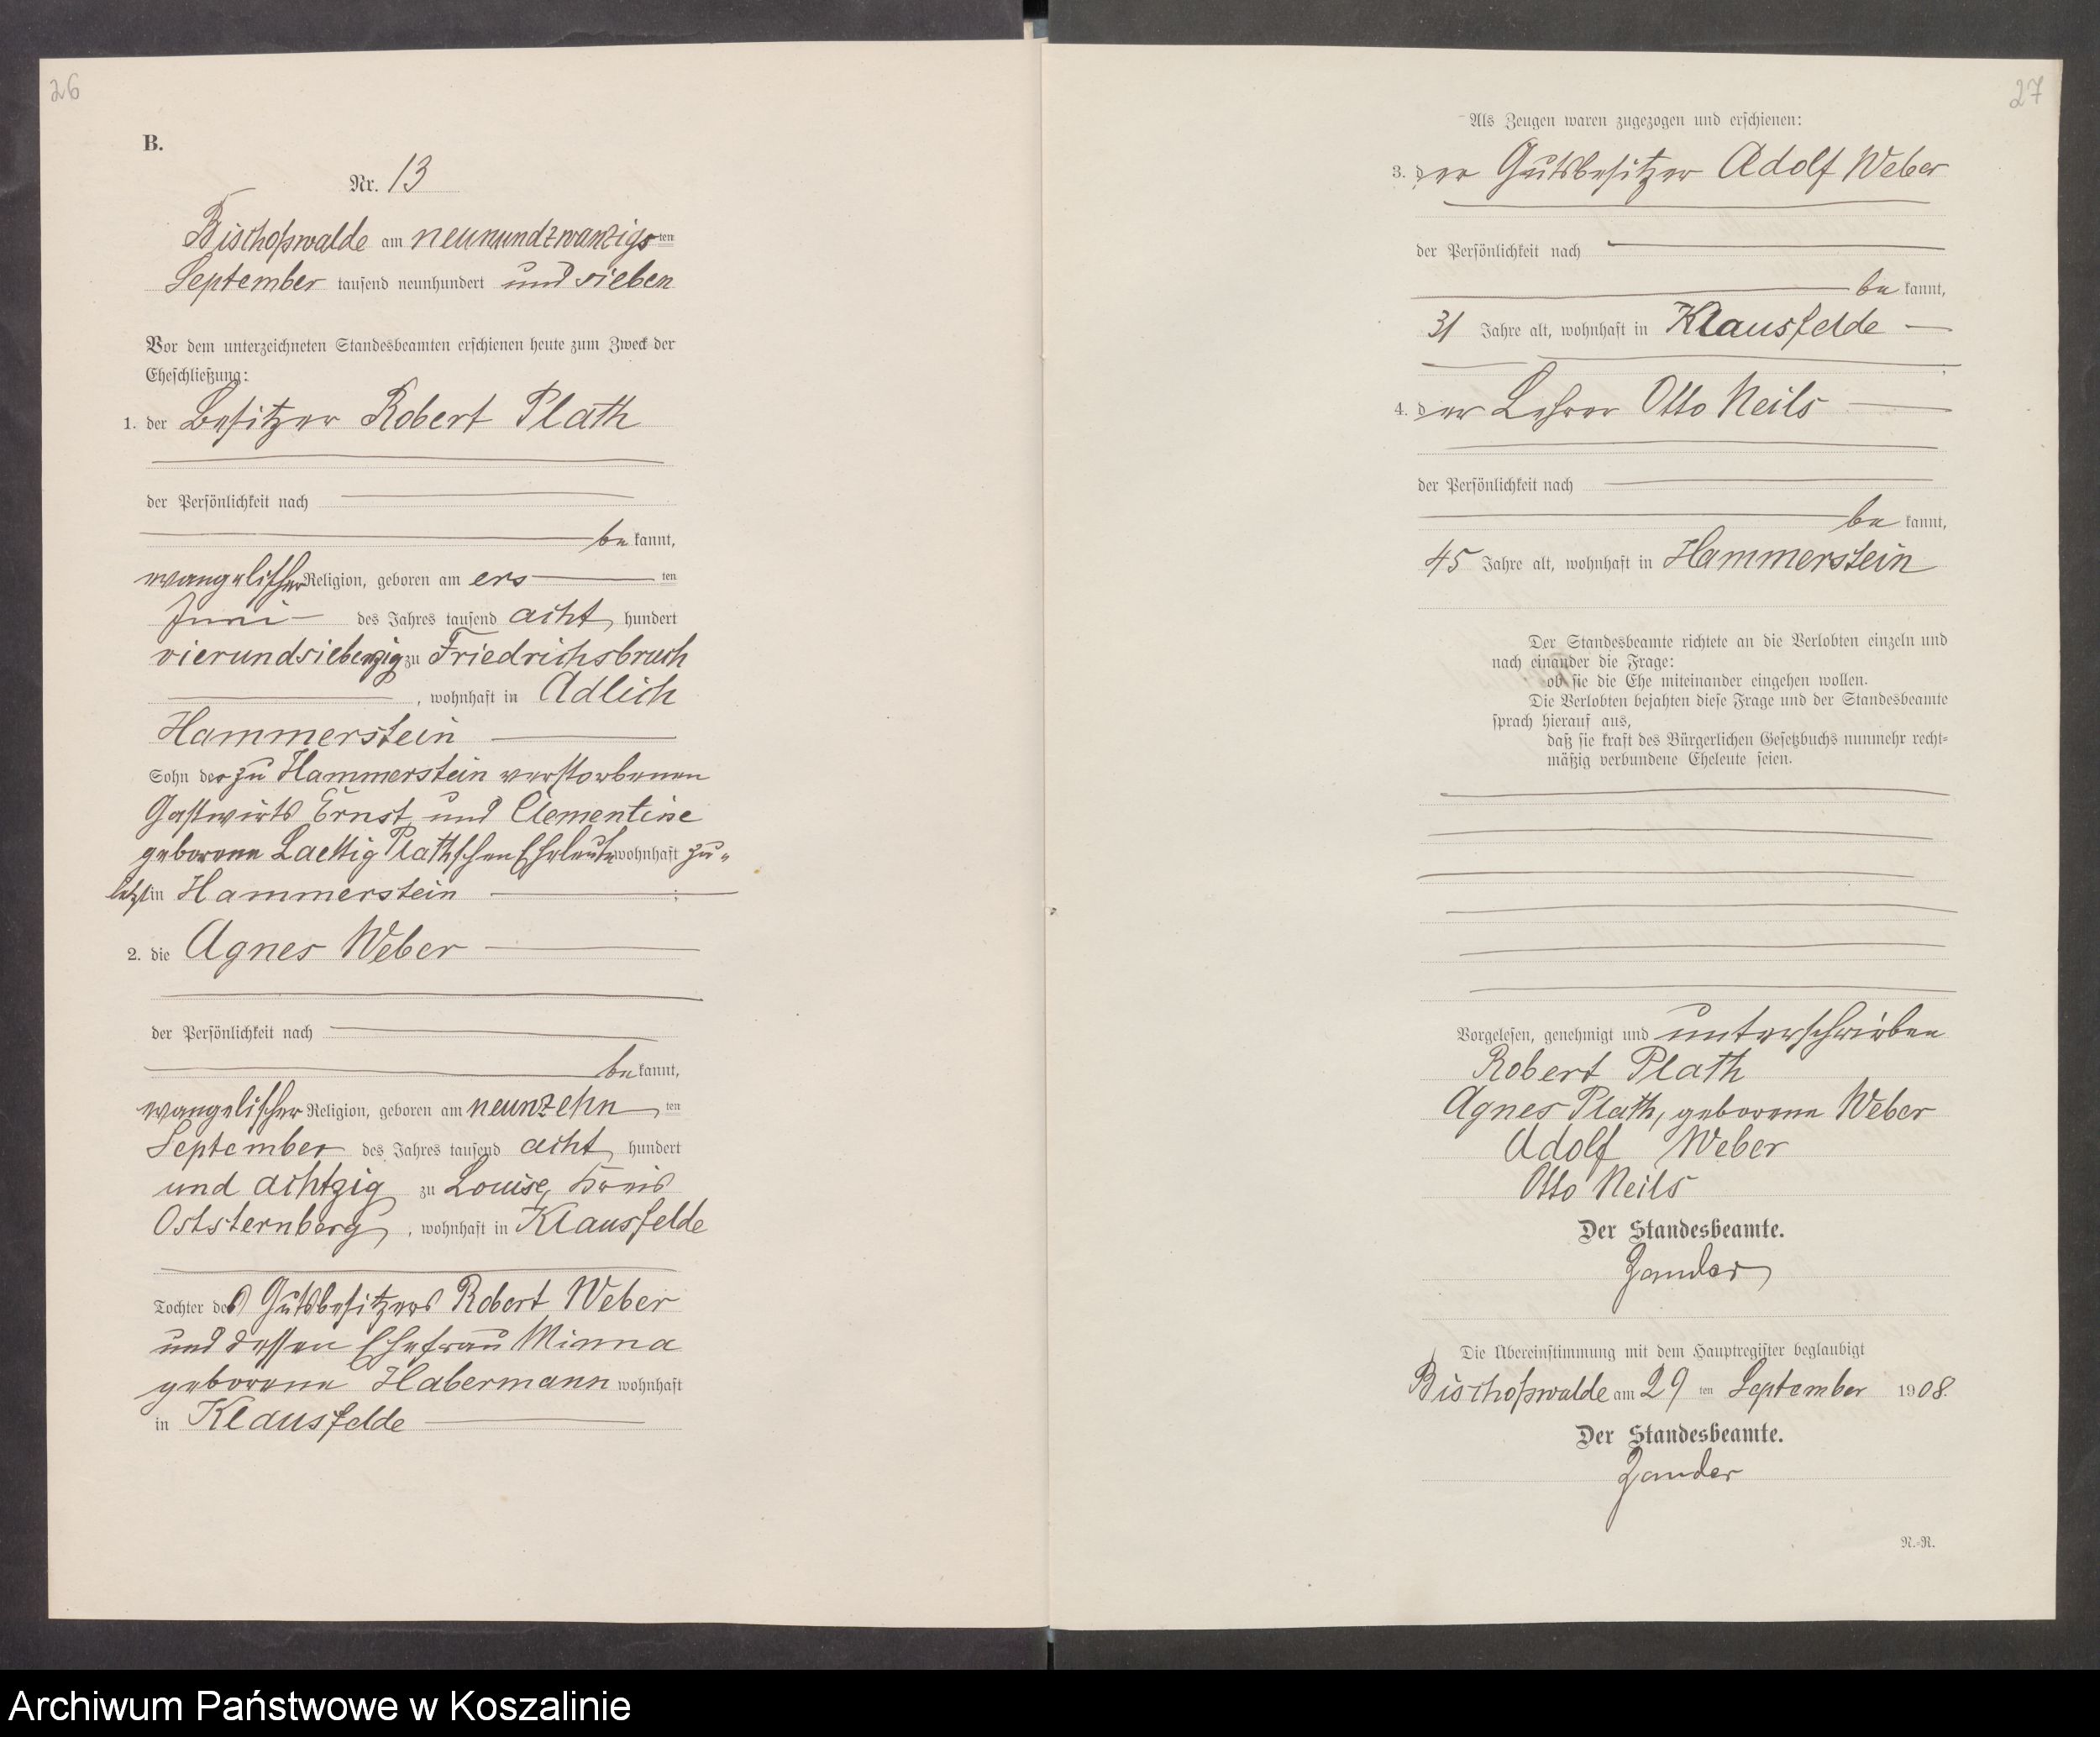 26
B.
Nr. 13
Bischofswalde am neunundzwanzigsten
September tausend neunhundert und sieben
Vor dem unterzeichneten Standesbeamten erschienen heute zum Zweck der
Eheschließung:
1. der Besitzer Robert Plath
der Persönlichkeit nach
be kannt,
evangelischer Religion, geboren am ersten
Juni des Jahres tausend acht hundert
vierundsiebenzig zu Friedrichsbruch
, wohnhaft in Adlich
Hammerstein
Sohn der zu Hammerstein verstorbenen
Gastwirts Ernst und Clementine
geborene Laettig Plathschen Eheleute wohnhaft zu„
letzt in Hammerstein ;
2. die Agnes Weber
der Persönlichkeit nach
be kannt,
evangelischer Religion, geboren am neunzehnten
September des Jahres tausend acht hundert
und achtzig zu Louise, Kreis
Oststernberg, , wohnhaft in Klausfelde
Tochter des Gutsbesitzers Robert Weber
und dessen Ehefrau Minna
geborene Habermann wohnhaft
in Klausfelde
27
Als Zeugen waren zugezogen und erschienen:
3. der Gutsbesitzer Adolf Weber
der Persönlichkeit nach
be kannt,
31 Jahre alt, wohnhaft in Klausfelde
;
4. der Lehrer Otto Neils
der Persönlichkeit nach
be kannt,
45 Jahre alt, wohnhaft in Hammerstein
Der Standesbeamte richtete an die Verlobten einzeln und
nach einander die Frage:
ob sie die Ehe miteinander eingehen wollen.
Die Verlobten bejahten diese Frage und der Standesbeamte
sprach hierauf aus,
daß sie kraft des Bürgerlichen Gesetzbuchs nunmehr recht=
mäßig verbundene Eheleute seien.
Vorgelesen, genehmigt und unterschrieben
Robert Plath
Agnes Plath, geborene Weber
Adolf Weber
Otto Neils
Der Standesbeamte.
Zander
Die Übereinstimmung mit dem Hauptregister beglaubigt
Bischofswalde am 29 ten September 1908.
Der Standesbeamte.
Zander
N.-R.
Archiwum Państwowe w Koszalinie